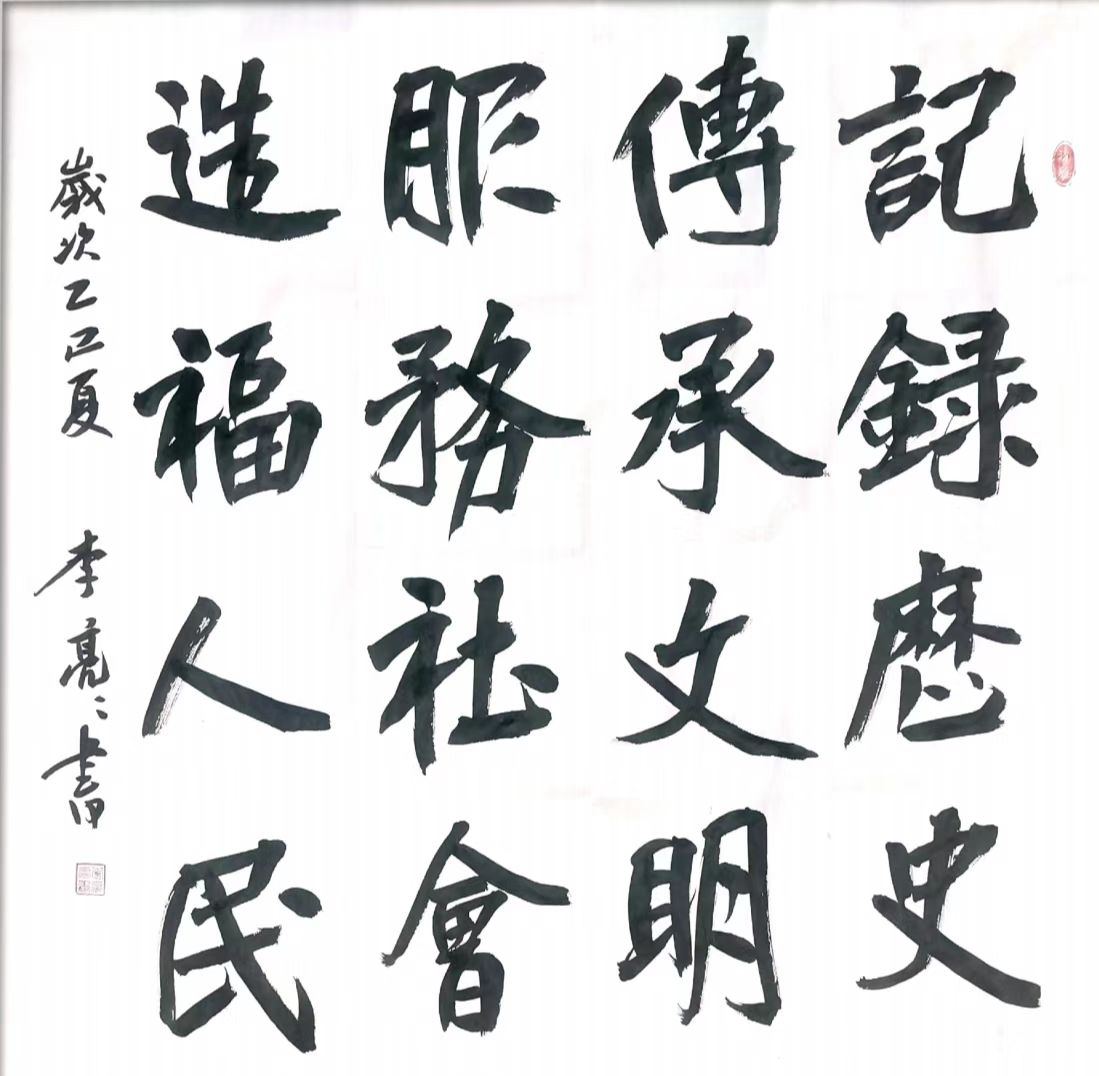 記錄歷史
傳承文明
服務社會
造福人民
歲次乙巳夏 李亮亮書